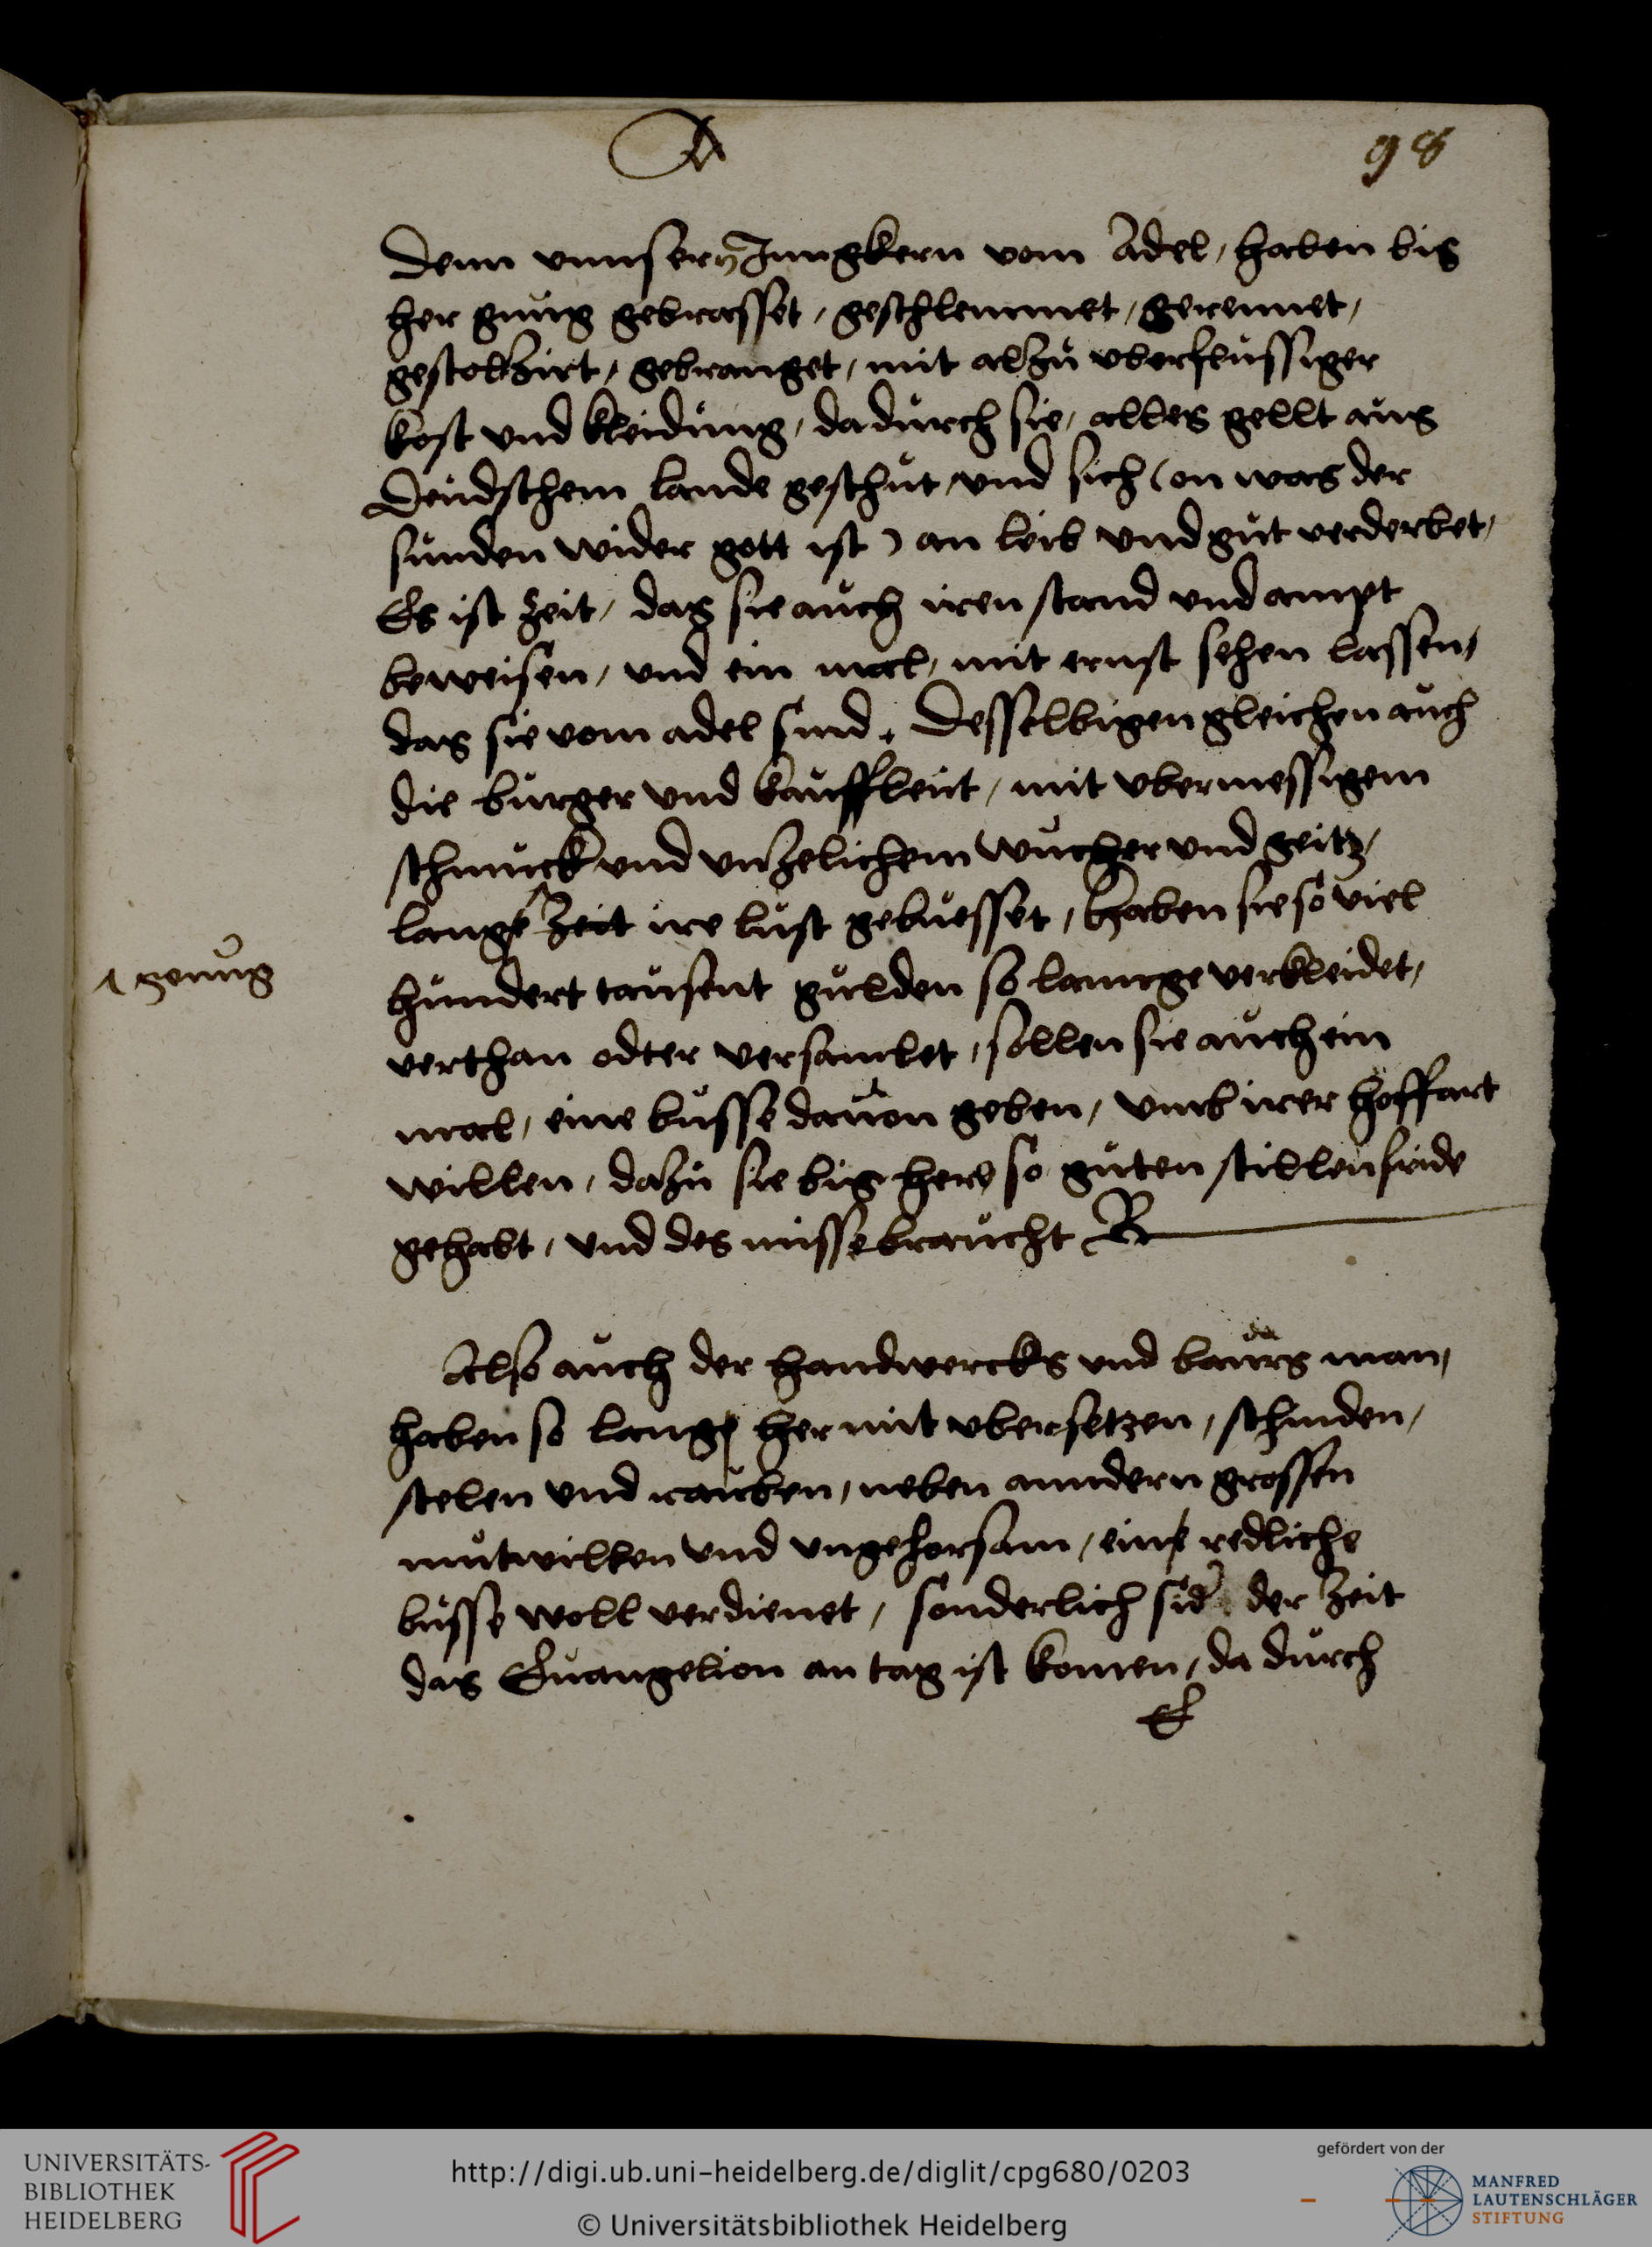 98
Denn vnnsern Jungkern vom Adel, haben bis
her gnug gebrasset, geschlemmet, gerennet,
gestoltzirt, gebranget, mit alzu vberflussiger
kost vnd kleidung, da durch sie, alles gellt aus
Deudschem lande geschut, vnd sich (on was der
sunden wider gott ist) an leib vnd gut verderbet,
Es ist zeit, das sie auch iren stand vnd ampt
beweisen, vnd ein mal, mit ernst sehen lassen,
das sie vom adel sind. Desselbigen gleichen auch
die burger vnd kauffleut, mit vbermessigem
schmuck vnd vnzelichem wucher vnd geitz,
lange zeit ire lust gebuesset, Haben sie so viel
genug
hundert tausent gulden so lannge verkleidet,
verthan odter versamlet, sollen sie auch ein
mal, eine busse dauon geben, vmb irer hoffart
willen, dazu sie bis her so guten stillen fride
gehabt, vnd des missebraucht
Also auch der handwercks vnd baurs man,
haben so lang her mit vbersetzen, schinden,
stelen vnd rauben, neben anndern grossen
mutwillen vnd vngehorsam, eine redliche
busse woll verdienet, sonderlich sid der zeit
das Euangelion an tag ist komen, da durch
UNIVERSITÄTS-
BIBLIOTHEK
HEIDELBERG
http://digi.ub.uni-heidelberg.de/diglit/cpg680/0203
© Universitätsbibliothek Heidelberg
gefördert von der
MANFRED
LAUTENSCHLÄGER
STIFTUNG